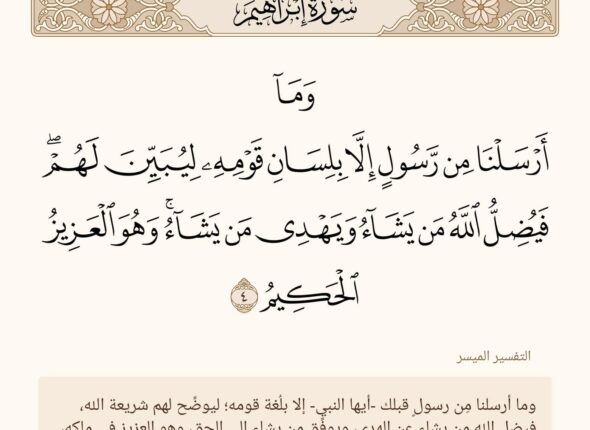 سُورَةُ إِبْرَاهِيمَ
وَمَآ
أَرْسَلْنَا مِن رَّسُولٍ إِلَّا بِلِسَانِ قَوْمِهِۦ لِيُبَيِّنَ لَهُمْۖ
فَيُضِلُّ ٱللَّهُ مَن يَشَآءُ وَيَهْدِى مَن يَشَآءُۚ وَهُوَ ٱلْعَزِيزُ
ٱلْحَكِيمُ ٤
التفسير الميسر
وما أرسلنا مِن رسولٍ قبلك -أيها النبي- إلا بلُغة قومه؛ ليوضِّح لهم شريعة الله،
فيضل الله من يشاء عن الهدى، ويوفِّق من يشاء إلى الحق، وهو العزيز في ملكه،